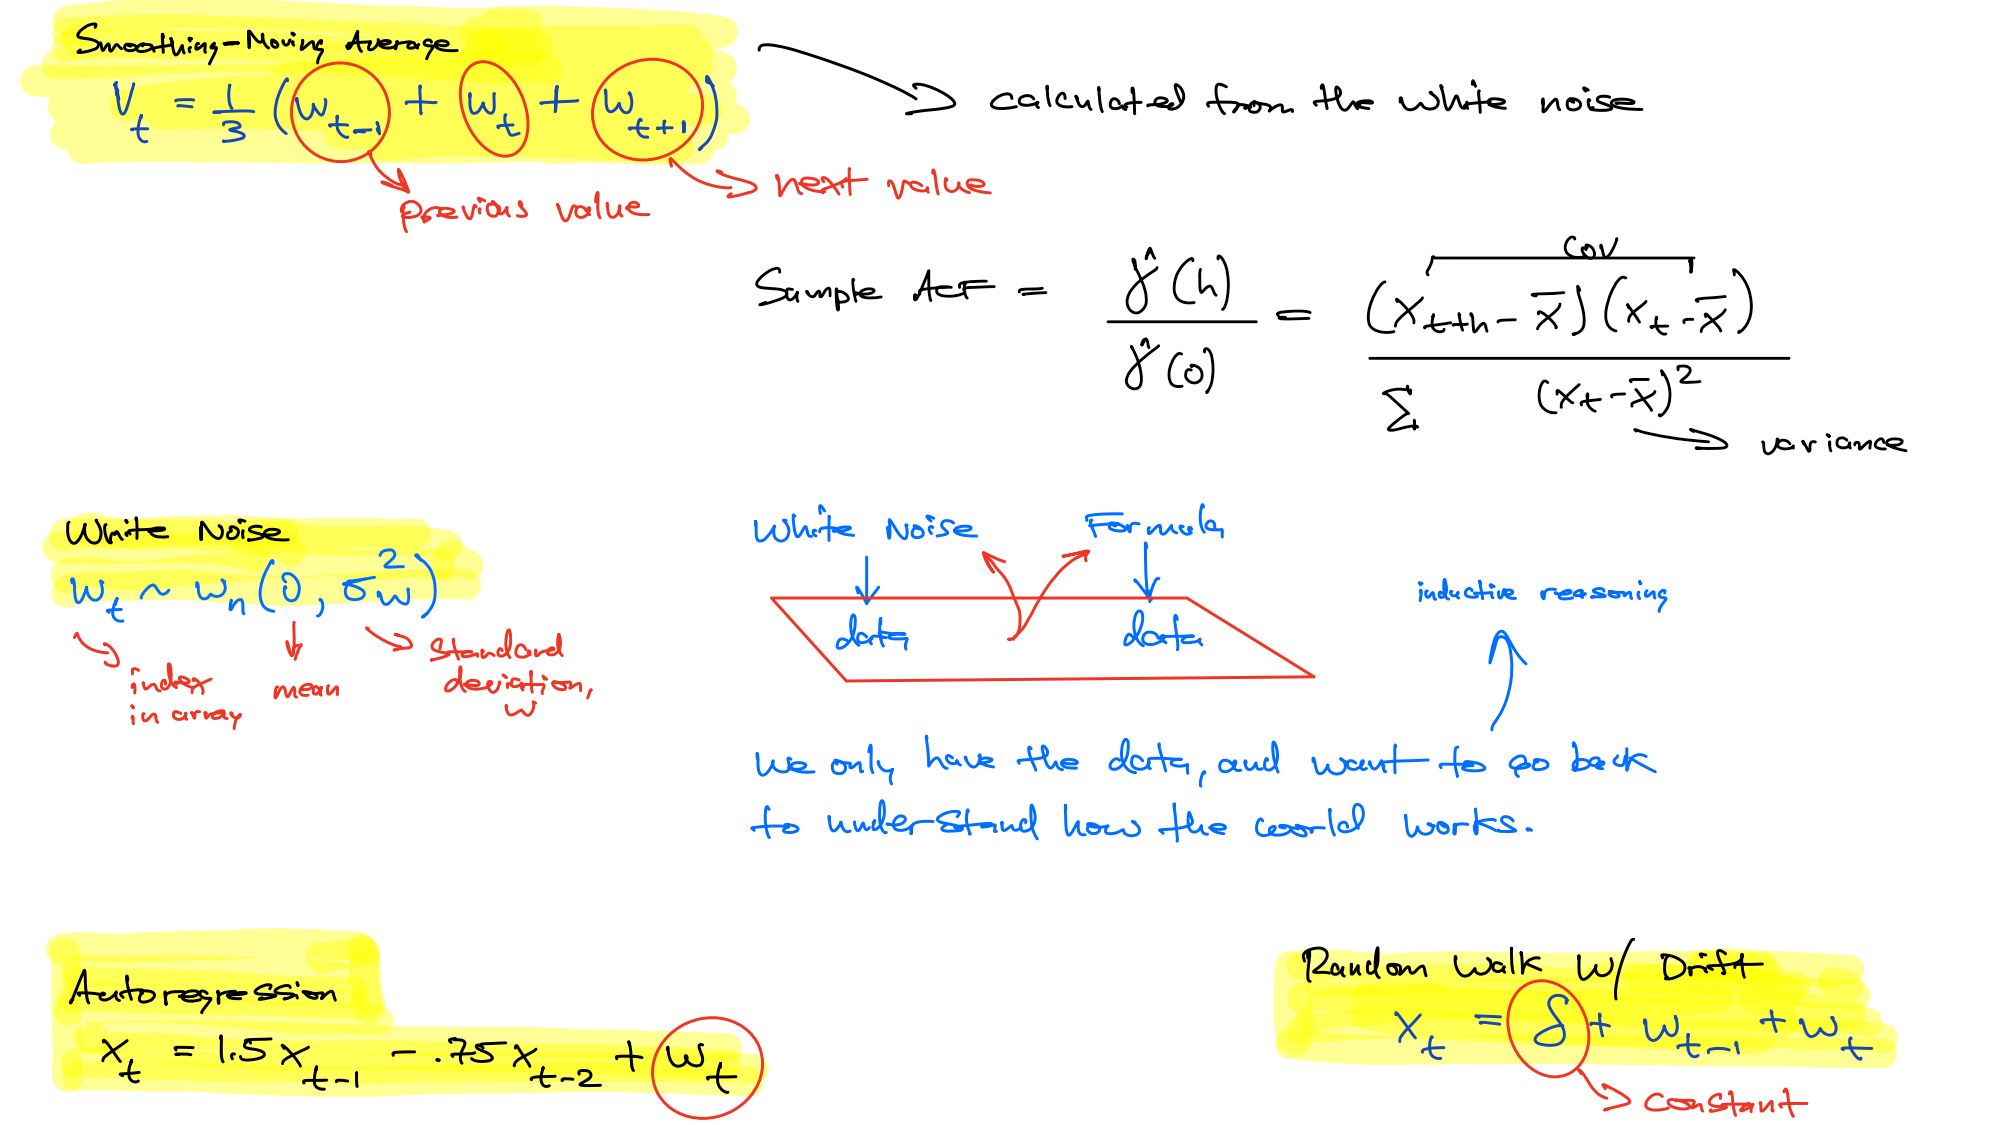 Smoothing-Moving Average
V_t = 1/3 (w_{t-1} + w_t + w_{t+1})
calculated from the white noise
previous value
next value
Sample ACF = γ̂(h) / γ̂(0) = (x_{t+h} - x̄)(x_t - x̄) / Σ (x_t - x̄)²
cov
variance
White Noise
w_t ~ w_n(0, σ_w²)
index
in array
mean
standard
deviation,
w
White Noise
Formula
data
data
inductive reasoning
we only have the data, and want to go back
to understand how the world works.
Autoregression
x_t = 1.5x_{t-1} - .75x_{t-2} + w_t
Random Walk w/ Drift
x_t = δ + w_{t-1} + w_t
constant